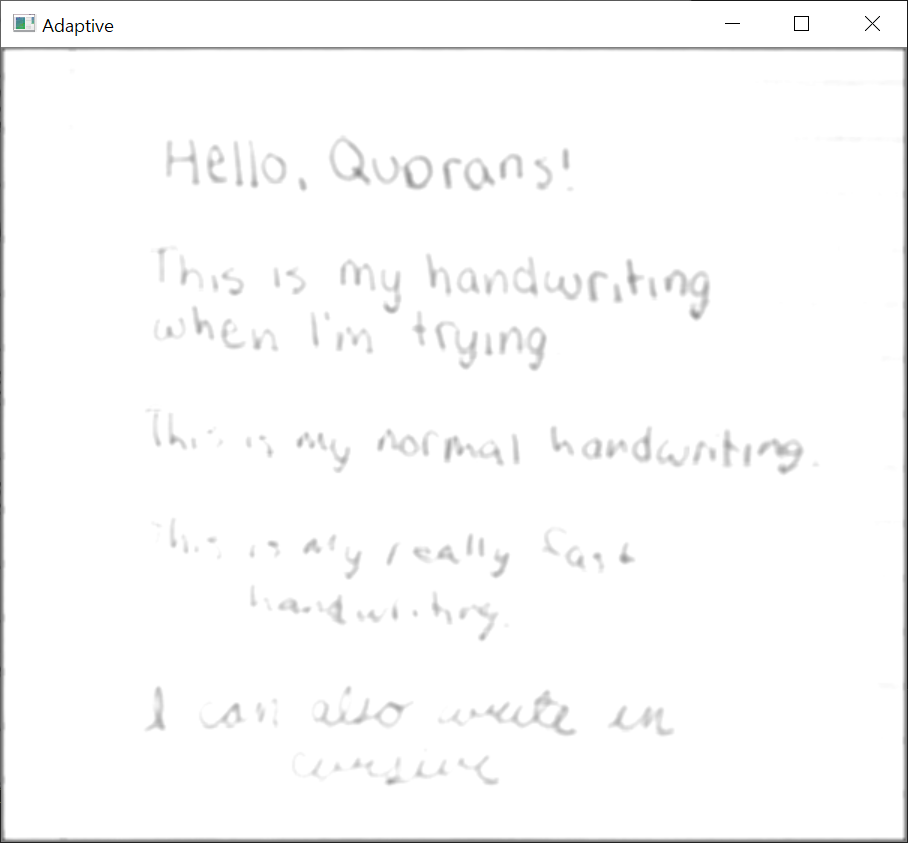 Adaptive
Hello, Quorans!
This is my handwriting
when I'm trying
This is my normal handwriting.
This is my really fast
handwriting.
I can also write in
cursive